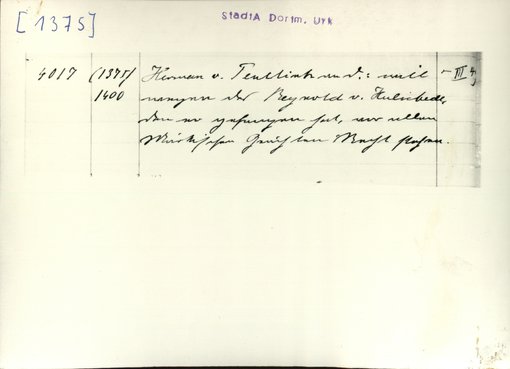 [1375]
StadtA Dortm. Urk
4017 (1375/ Herman v. an d.: will - III 4,
1400 wegen des Reynold v. 
den er gefangen hat, vor allen
Märkischen Gerichten Recht stehen.